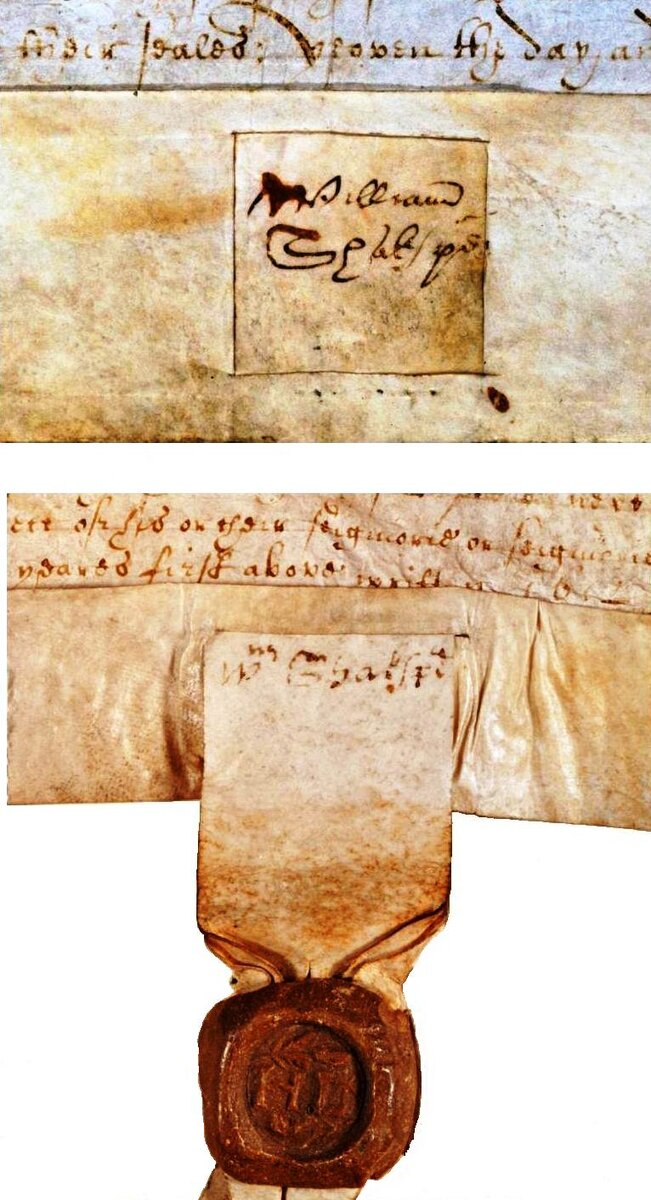 their seales; yeoven the day, an
William
Shakspe
ett of his or their seigniorie or seigniorie
yeares first above written
Wm Shakspe